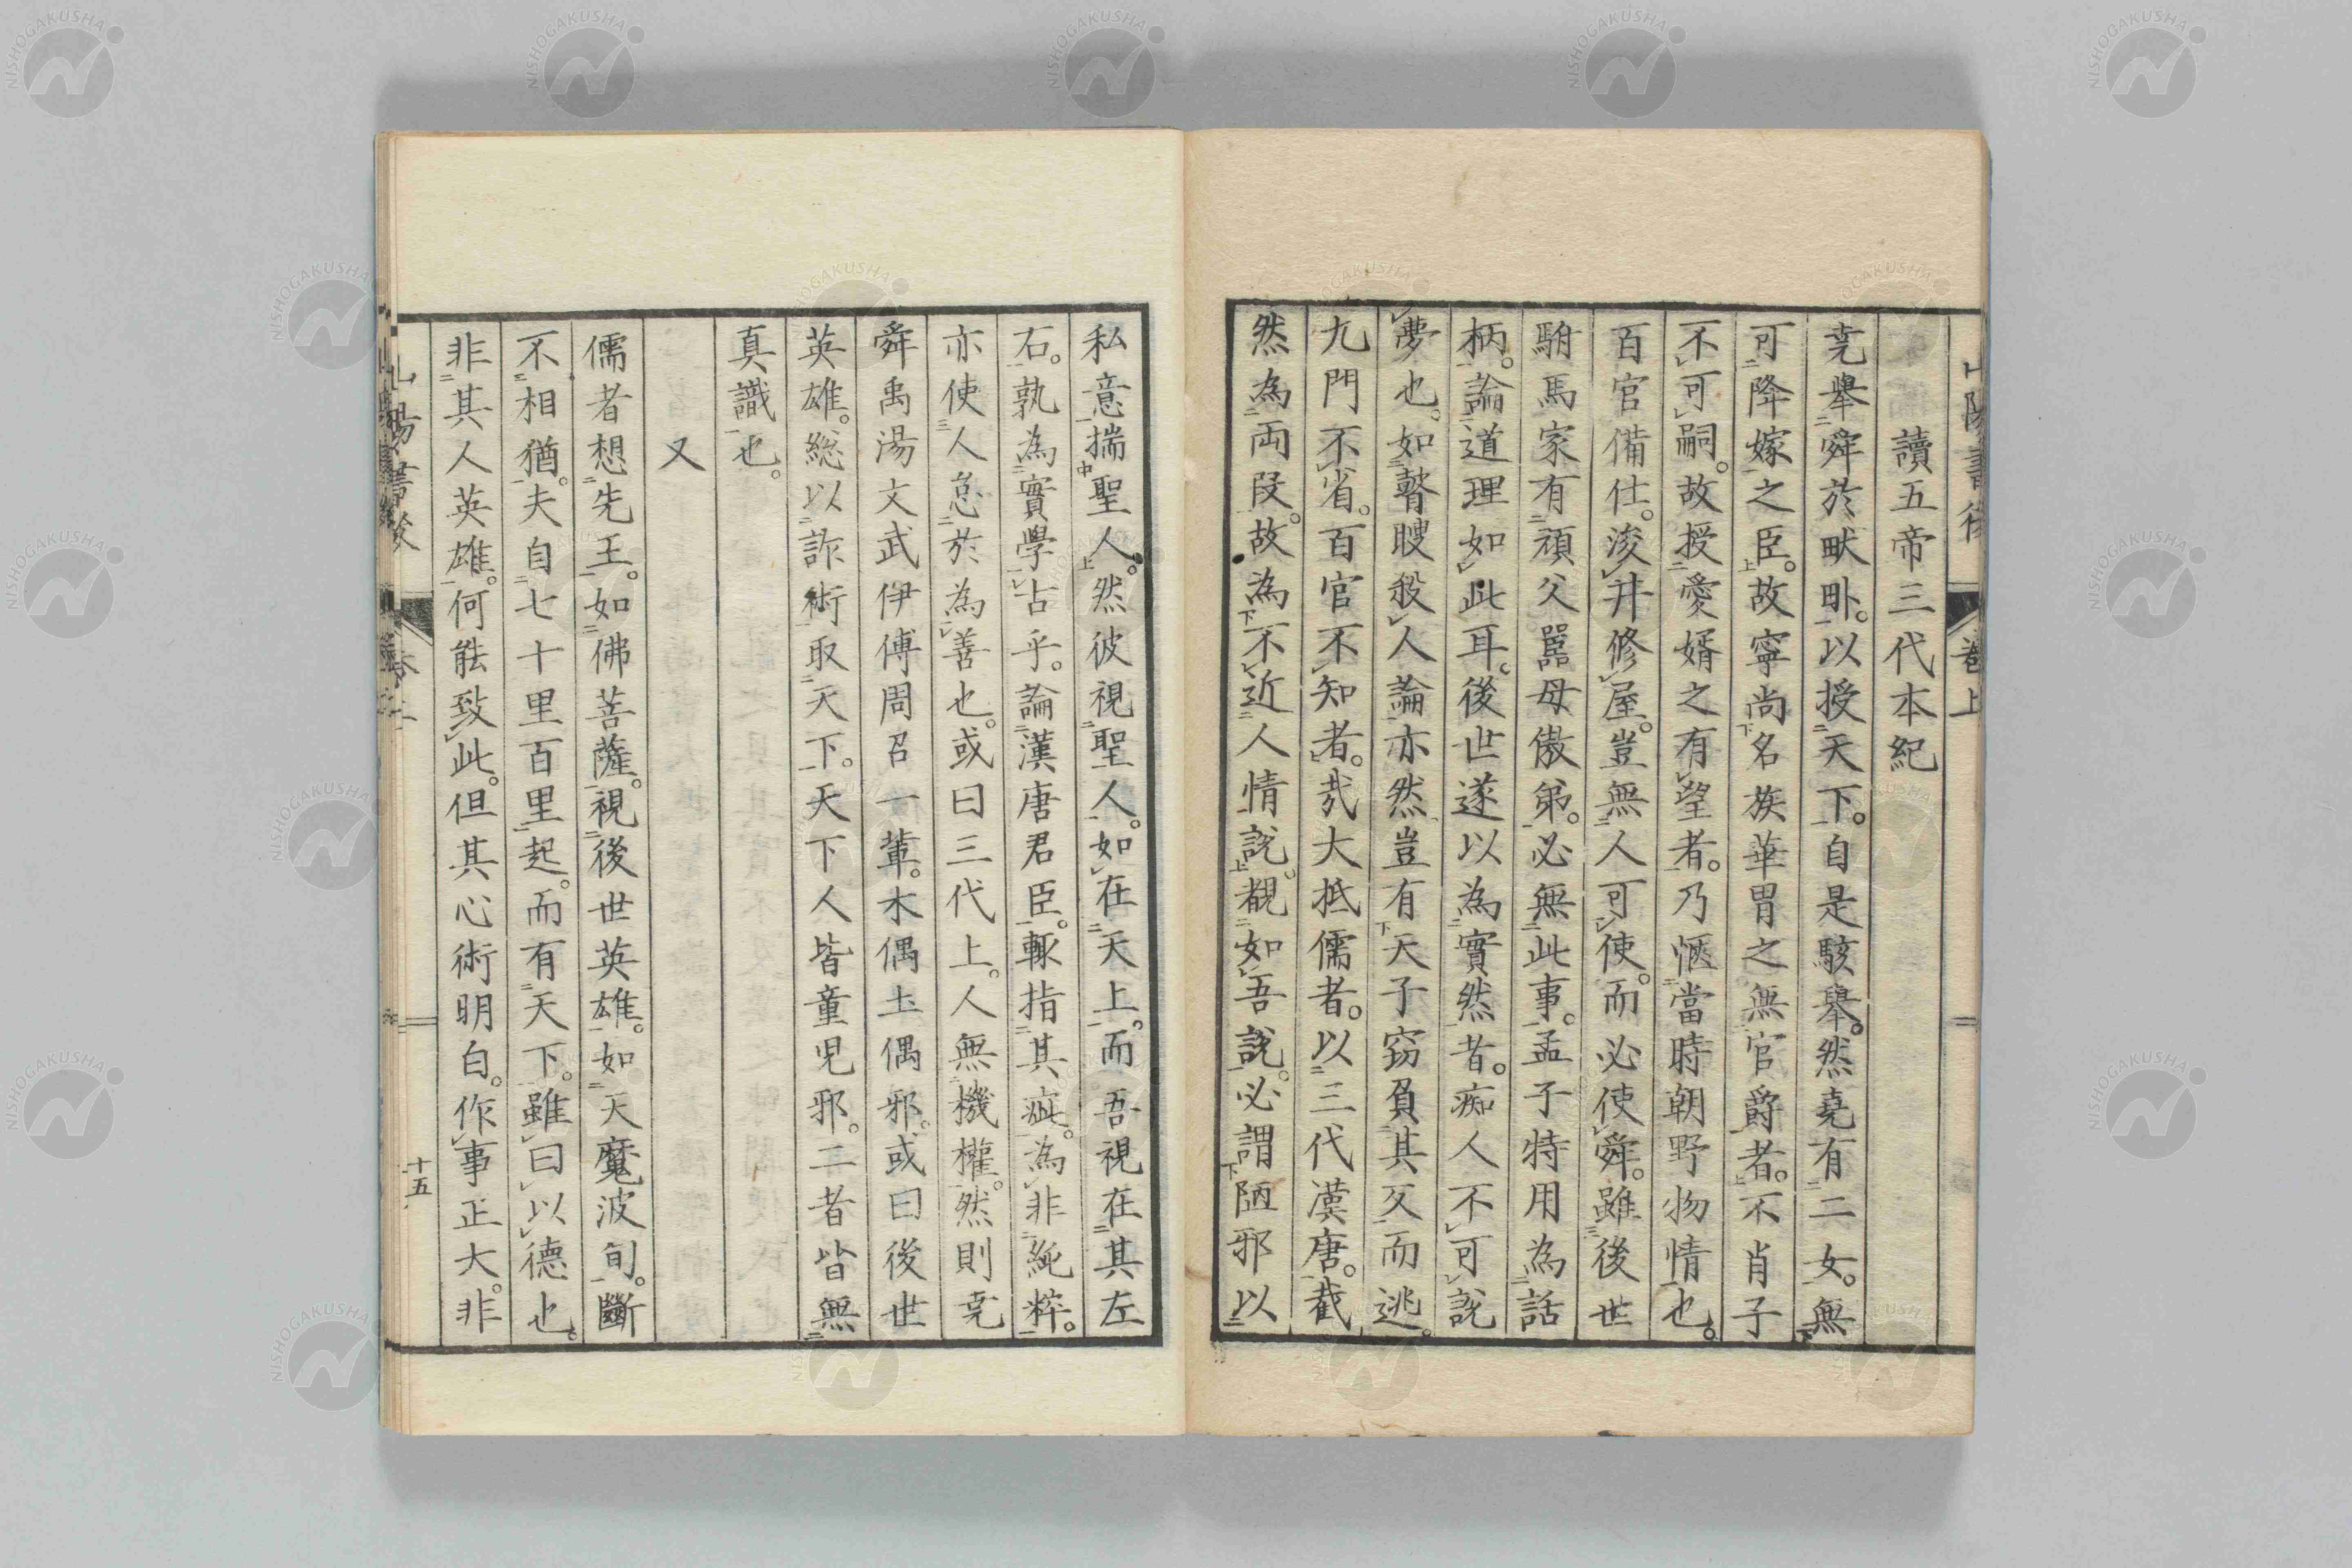 山陽書後
卷上
讀五帝三代本紀
堯擧舜於畎畝。以授天下。自是駭擧。然堯有二女。無
可降嫁之臣。故寧尚名族華胄之無官爵者。不肖子
不可嗣。故授愛婿之有望者。乃愜當時朝野物情也。
百官備仕。浚井修屋。豈無人可使。而必使舜。雖後世
駙馬家有頑父嚚母傲弟。必無此事。孟子特用為話
柄。論道理如此耳。後世遂以為實然者。痴人不可說
夢也。如瞽瞍殺人論亦然豈有天子竊負其父而逃。
九門不省。百官不知者。哉大抵儒者。以三代漢唐。截
然為両段。故為不近人情說。覩如吾說。必謂陋邪以
私意揣聖人。然彼視聖人。如在天上。而吾視在其左
右。孰為實學占乎。論漢唐君臣。輙指其疵。為非純粹。
亦使人怠於為善也。或曰三代上。人無機權。然則堯
舜禹湯文武伊傅周召一輩。木偶土偶邪。或曰後世
英雄。総以詐術取天下。天下人皆童児邪。二者皆無
真識也。
又
儒者想先王。如佛菩薩。視後世英雄。如天魔波旬。斷
不相猶。夫自七十里百里起。而有天下。雖曰以德也。
非其人英雄。何能致此。但其心術明白。作事正大。非
山陽書後
十五